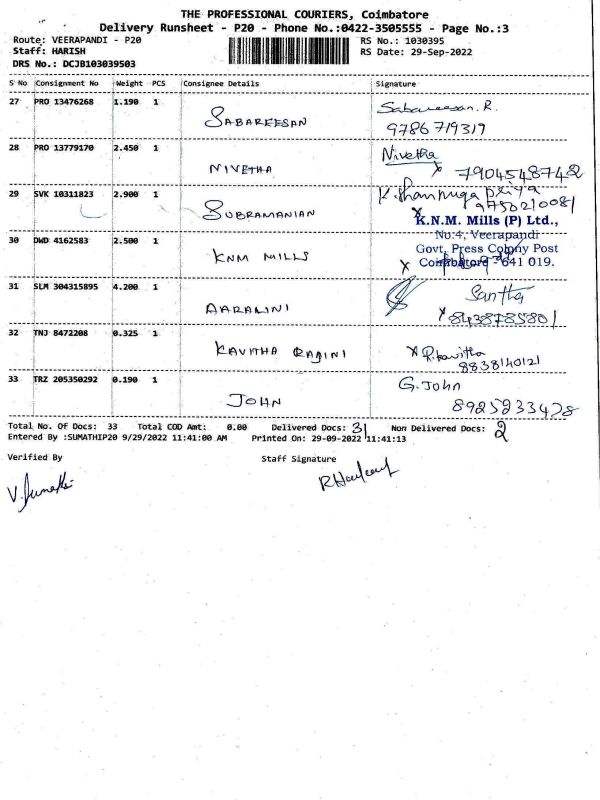 THE PROFESSIONAL COURIERS, Coimbatore
Delivery Runsheet - P20 - Phone No.:0422-3505555 - Page No.:3
Route: VEERAPANDI - P20 RS No.: 1030395
Staff: HARISH RS Date: 29-Sep-2022
DRS No.: DCJB103039503
S No Consignment No Weight PCS Consignee Details Signature
27 PRO 13476268 1.190 1 SABAREESAN Sabareesan. R.
9786719319
28 PRO 13779170 2.450 1 NIVETHA Nivetha
x 7904548742
29 SVK 10311823 2.900 1 SUBRAMANIAN K. Shanmuga priya
9750210081
30 DWD 4162583 2.500 1 KNM MILLS K.N.M. Mills (P) Ltd.,
No:4, Veerapandi
Govt. Press Colony Post
x Coimbatore - 641 019.
31 SLM 304315895 4.200 1 AARALINI Santha
x 8438785801
32 TNJ 8472208 0.325 1 KAVITHA RAJINI x R.kavitha
8838140121
33 TRZ 205350292 0.190 1 JOHN G. John
8925233478
Total No. Of Docs: 33 Total COD Amt: 0.00 Delivered Docs: 31 Non Delivered Docs: 2
Entered By :SUMATHIP20 9/29/2022 11:41:00 AM Printed On: 29-09-2022 11:41:13
Verified By Staff Signature
V. Sumathi